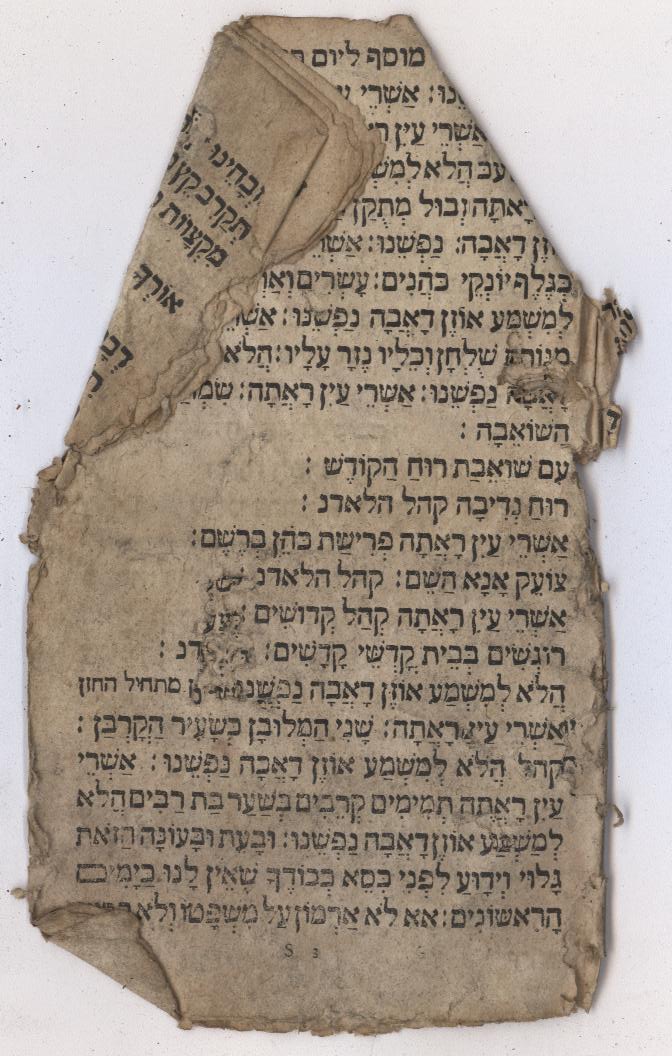 מוסף ליום
אַשְׁרֵי
אַשְׁרֵי עַיִן
הֲלֹא לְמִשְׁ
רָאֲתָה זְבוּל מְתֻקַּן
אוֹזֶן דָּאֲבָה: נַפְשֵׁנוּ: אַשְׁרֵי
כְּגֶלֶף יוֹנְקֵי כֹּהֲנִים: עֶשְׂרִים וְאַרְ
לְמִשְׁמַע אוֹזֶן דָּאֲבָה נַפְשֵׁנוּ: אַשְׁרֵי
מְנוֹרָה שֻׁלְחָן וְכֵלָיו נֵזֶר עָלָיו: הֲלֹא
דָּאֲבָה נַפְשֵׁנוּ: אַשְׁרֵי עַיִן רָאֲתָה: שִׂמְחַת
הַשּׁוֹאֵבָה:
עַם שׁוֹאֶבֶת רוּחַ הַקּוֹדֶשׁ:
רוּחַ נְדִיבָה קהל הלאדנ:
אַשְׁרֵי עַיִן רָאֲתָה פְּרִישַׁת כֹּהֵן בְּרֶשֶׁם:
צוֹעֵק אָנָּא הַשֵּׁם: קהל הלאדנ
אַשְׁרֵי עַיִן רָאֲתָה קְהַל קְדוֹשִׁים:
רוֹגְשִׁים בְּבֵית קָדְשֵׁי קָדָשִׁים: דנ:
הֲלֹא לְמִשְׁמַע אוֹזֶן דָּאֲבָה נַפְשֵׁנוּ מתחיל החזן
אַשְׁרֵי עַיִן רָאֲתָה: שָׁנִי הַמְלוּבָּן בְּשָׂעִיר הַקָּרְבָּן:
קהל הֲלֹא לְמִשְׁמַע אוֹזֶן דָּאֲבָה נַפְשֵׁנוּ: אַשְׁרֵי
עַיִן רָאֲתָה תְּמִימִים קְרֵבִים בְּשַׁעַר בַּת רַבִּים הֲלֹא
לְמִשְׁמַע אוֹזֶן דָּאֲבָה נַפְשֵׁנוּ: וּבְעֵת וּבְעוֹנָה הַזֹּאת
גָּלוּי וְיָדוּעַ לִפְנֵי כִסֵּא כְבוֹדֶךָ שֶׁאֵין לָנוּ כַּיָּמִים
הָרִאשׁוֹנִים: אא לֹא אַרְמוֹן עַל מִשְׁפָּטוֹ וְלֹא
S 3
וּבְחִינוּ
תִקְרַב קֵץ
מִקְצָווֹת
אוֹרְךָ